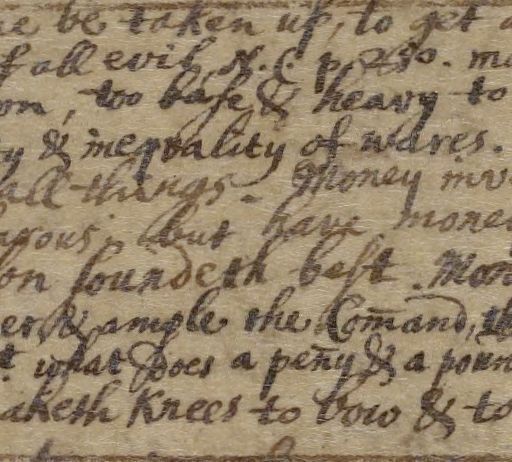 be taken up, to get
f all evil, N. C. p. 280. m
on, too base & heavy to
y & ineqvality of wares.
all things. Money inv
arous, but have mone
on soundeth best. Mon
er & ample the Com̄and, th
t. what does a peñy & a poun
aketh Knees to bow & to